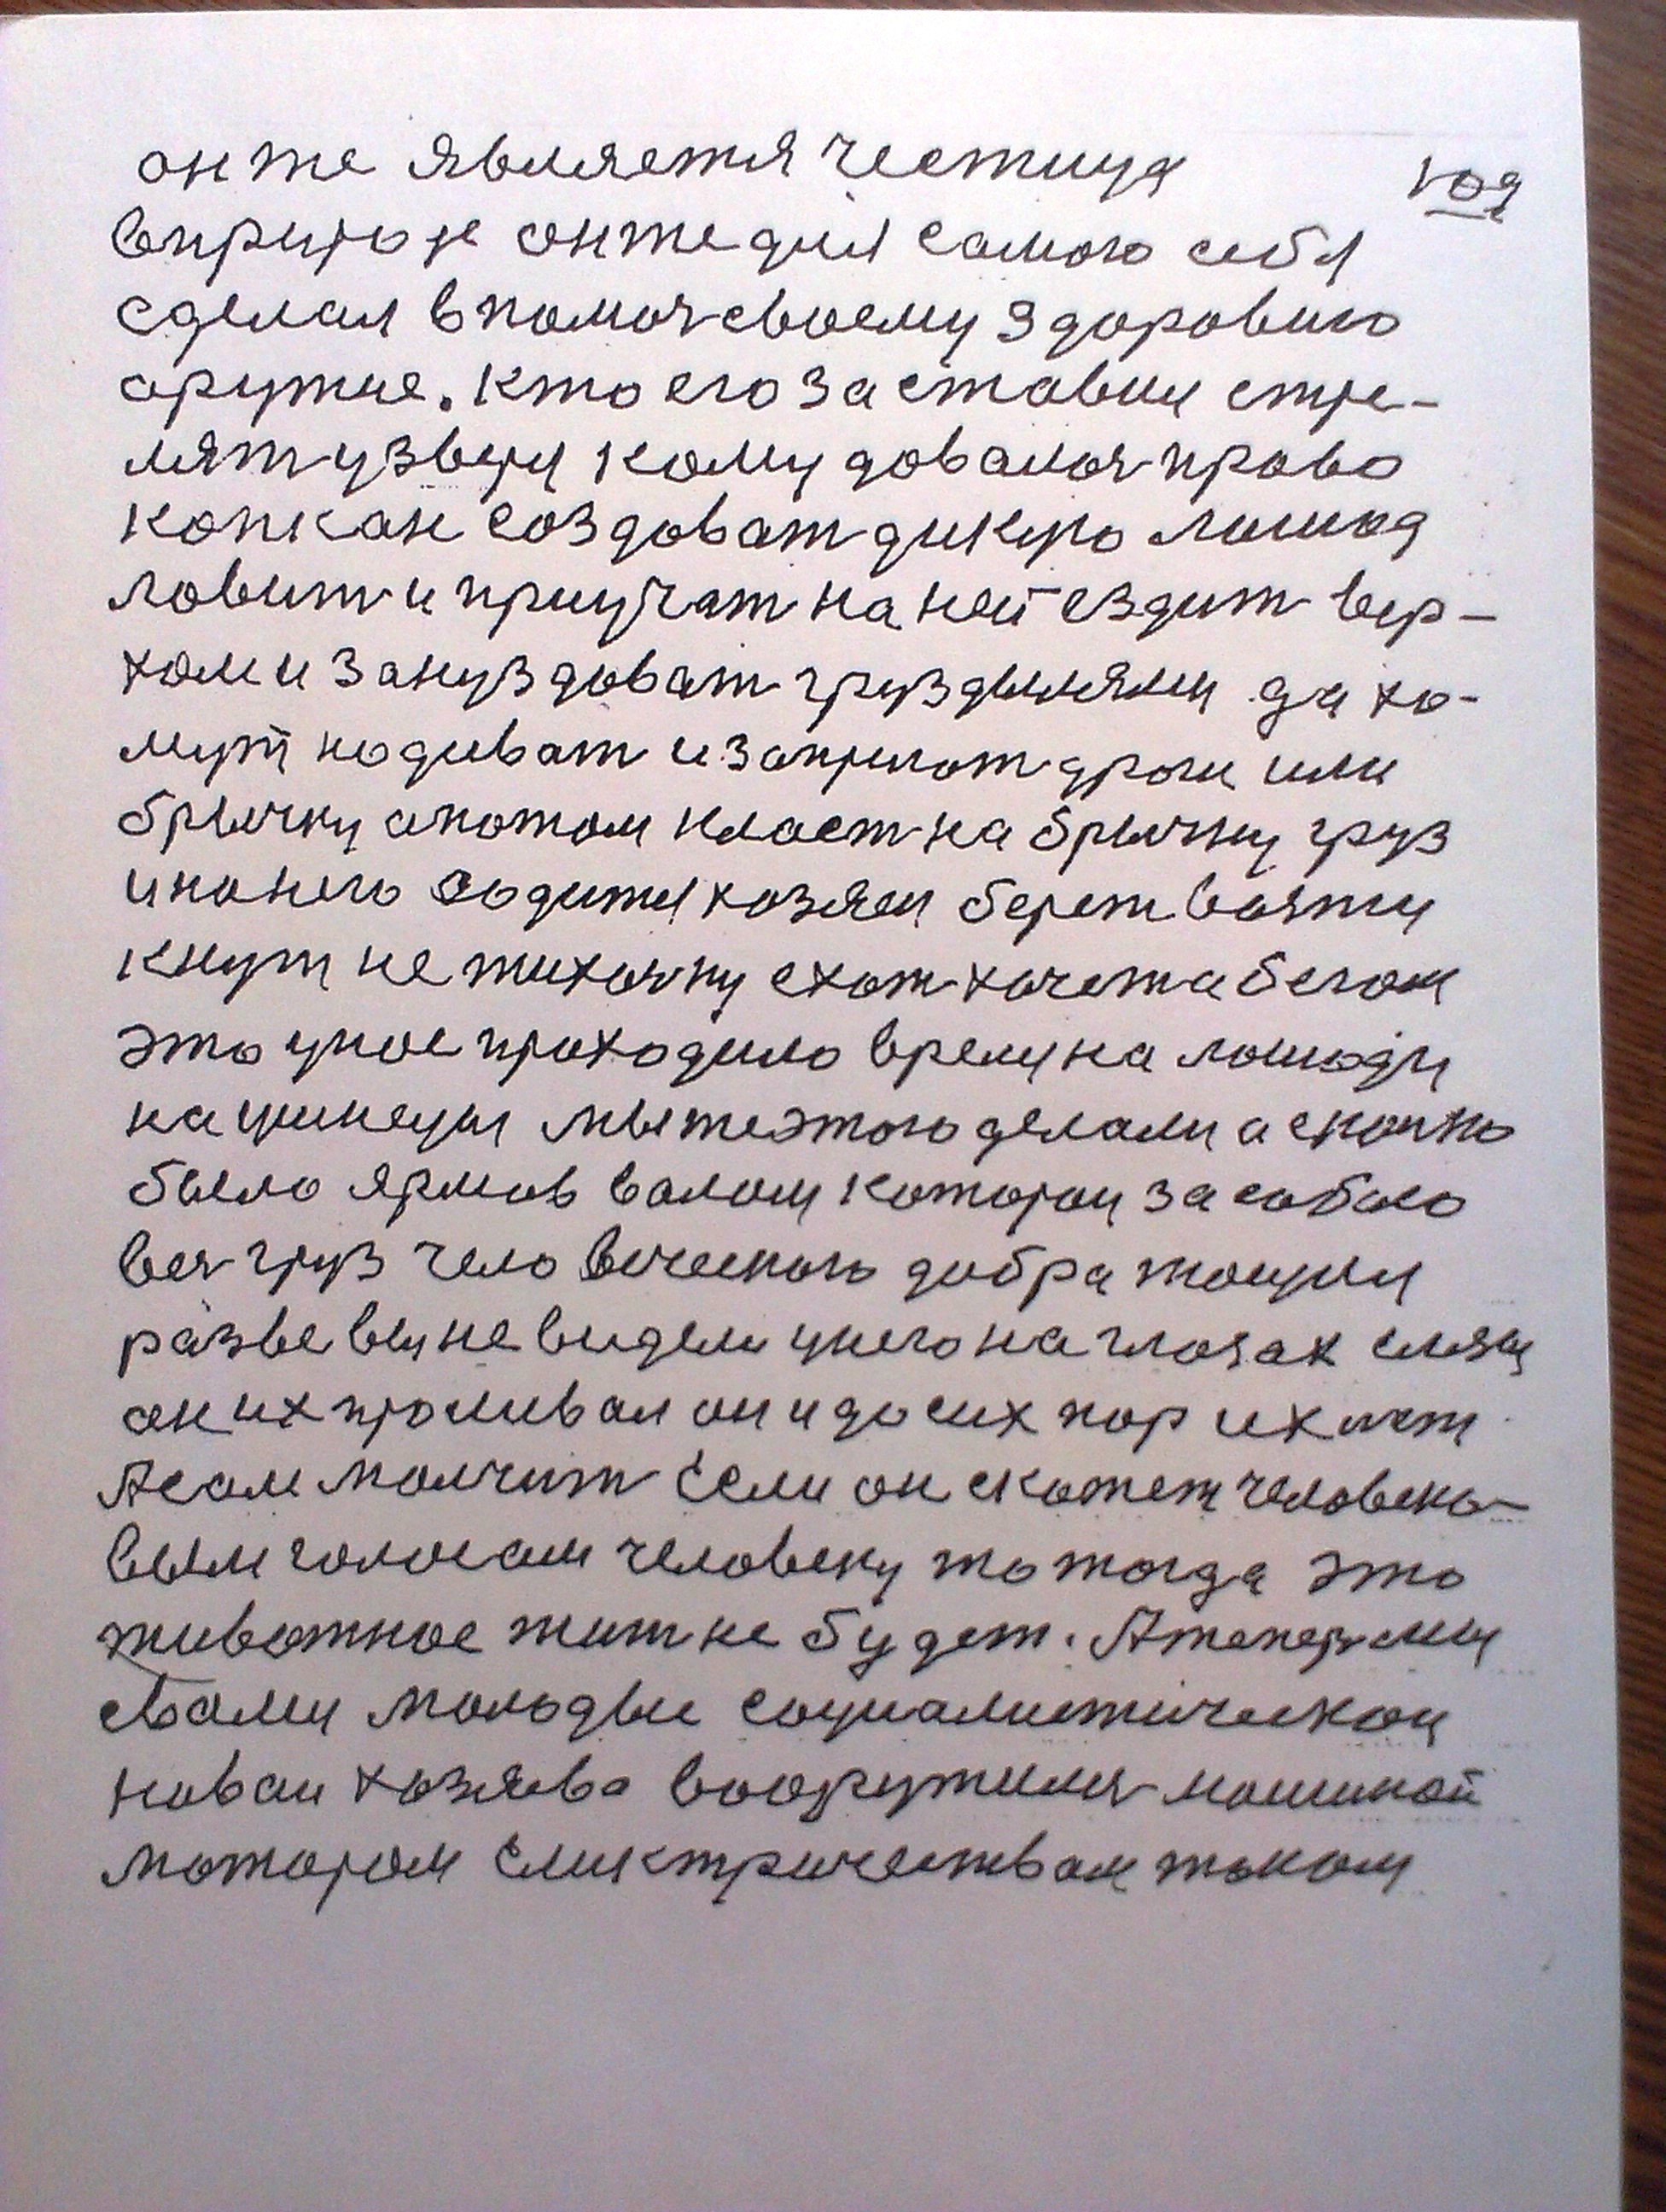 он же является честица
109
вприроде онже для самого себя
сделал впомоч своему здоровию
аружие. Кто его заставил стре-
лят узвери кому довалоч право
копкан создоват дикую лошод
ловит и приучат на ней ездит вер-
хом и зануздоват груздылями да хо-
мут нодиват изапрегат дроги или
брычку апотом класт на брычку груз
инанего содится хозяен берет
кнут не тихочку ехат хочет абегом
это уное проходило время на лошоди
мы же этого делали асколко
было ярмов волом которои за собою
вез груз человеческого добра тощии
разве вы не видели унего на глозах слязы
он их проливал он и до сих пор их лет
А сам молчит Если он скожет человеко-
вым голосам человеку то тогда это
животное жит не будет. А теперь мы
свами молодые социалистическои
новаи хозяева вооружилися машиной
мотором Еликтричеством током